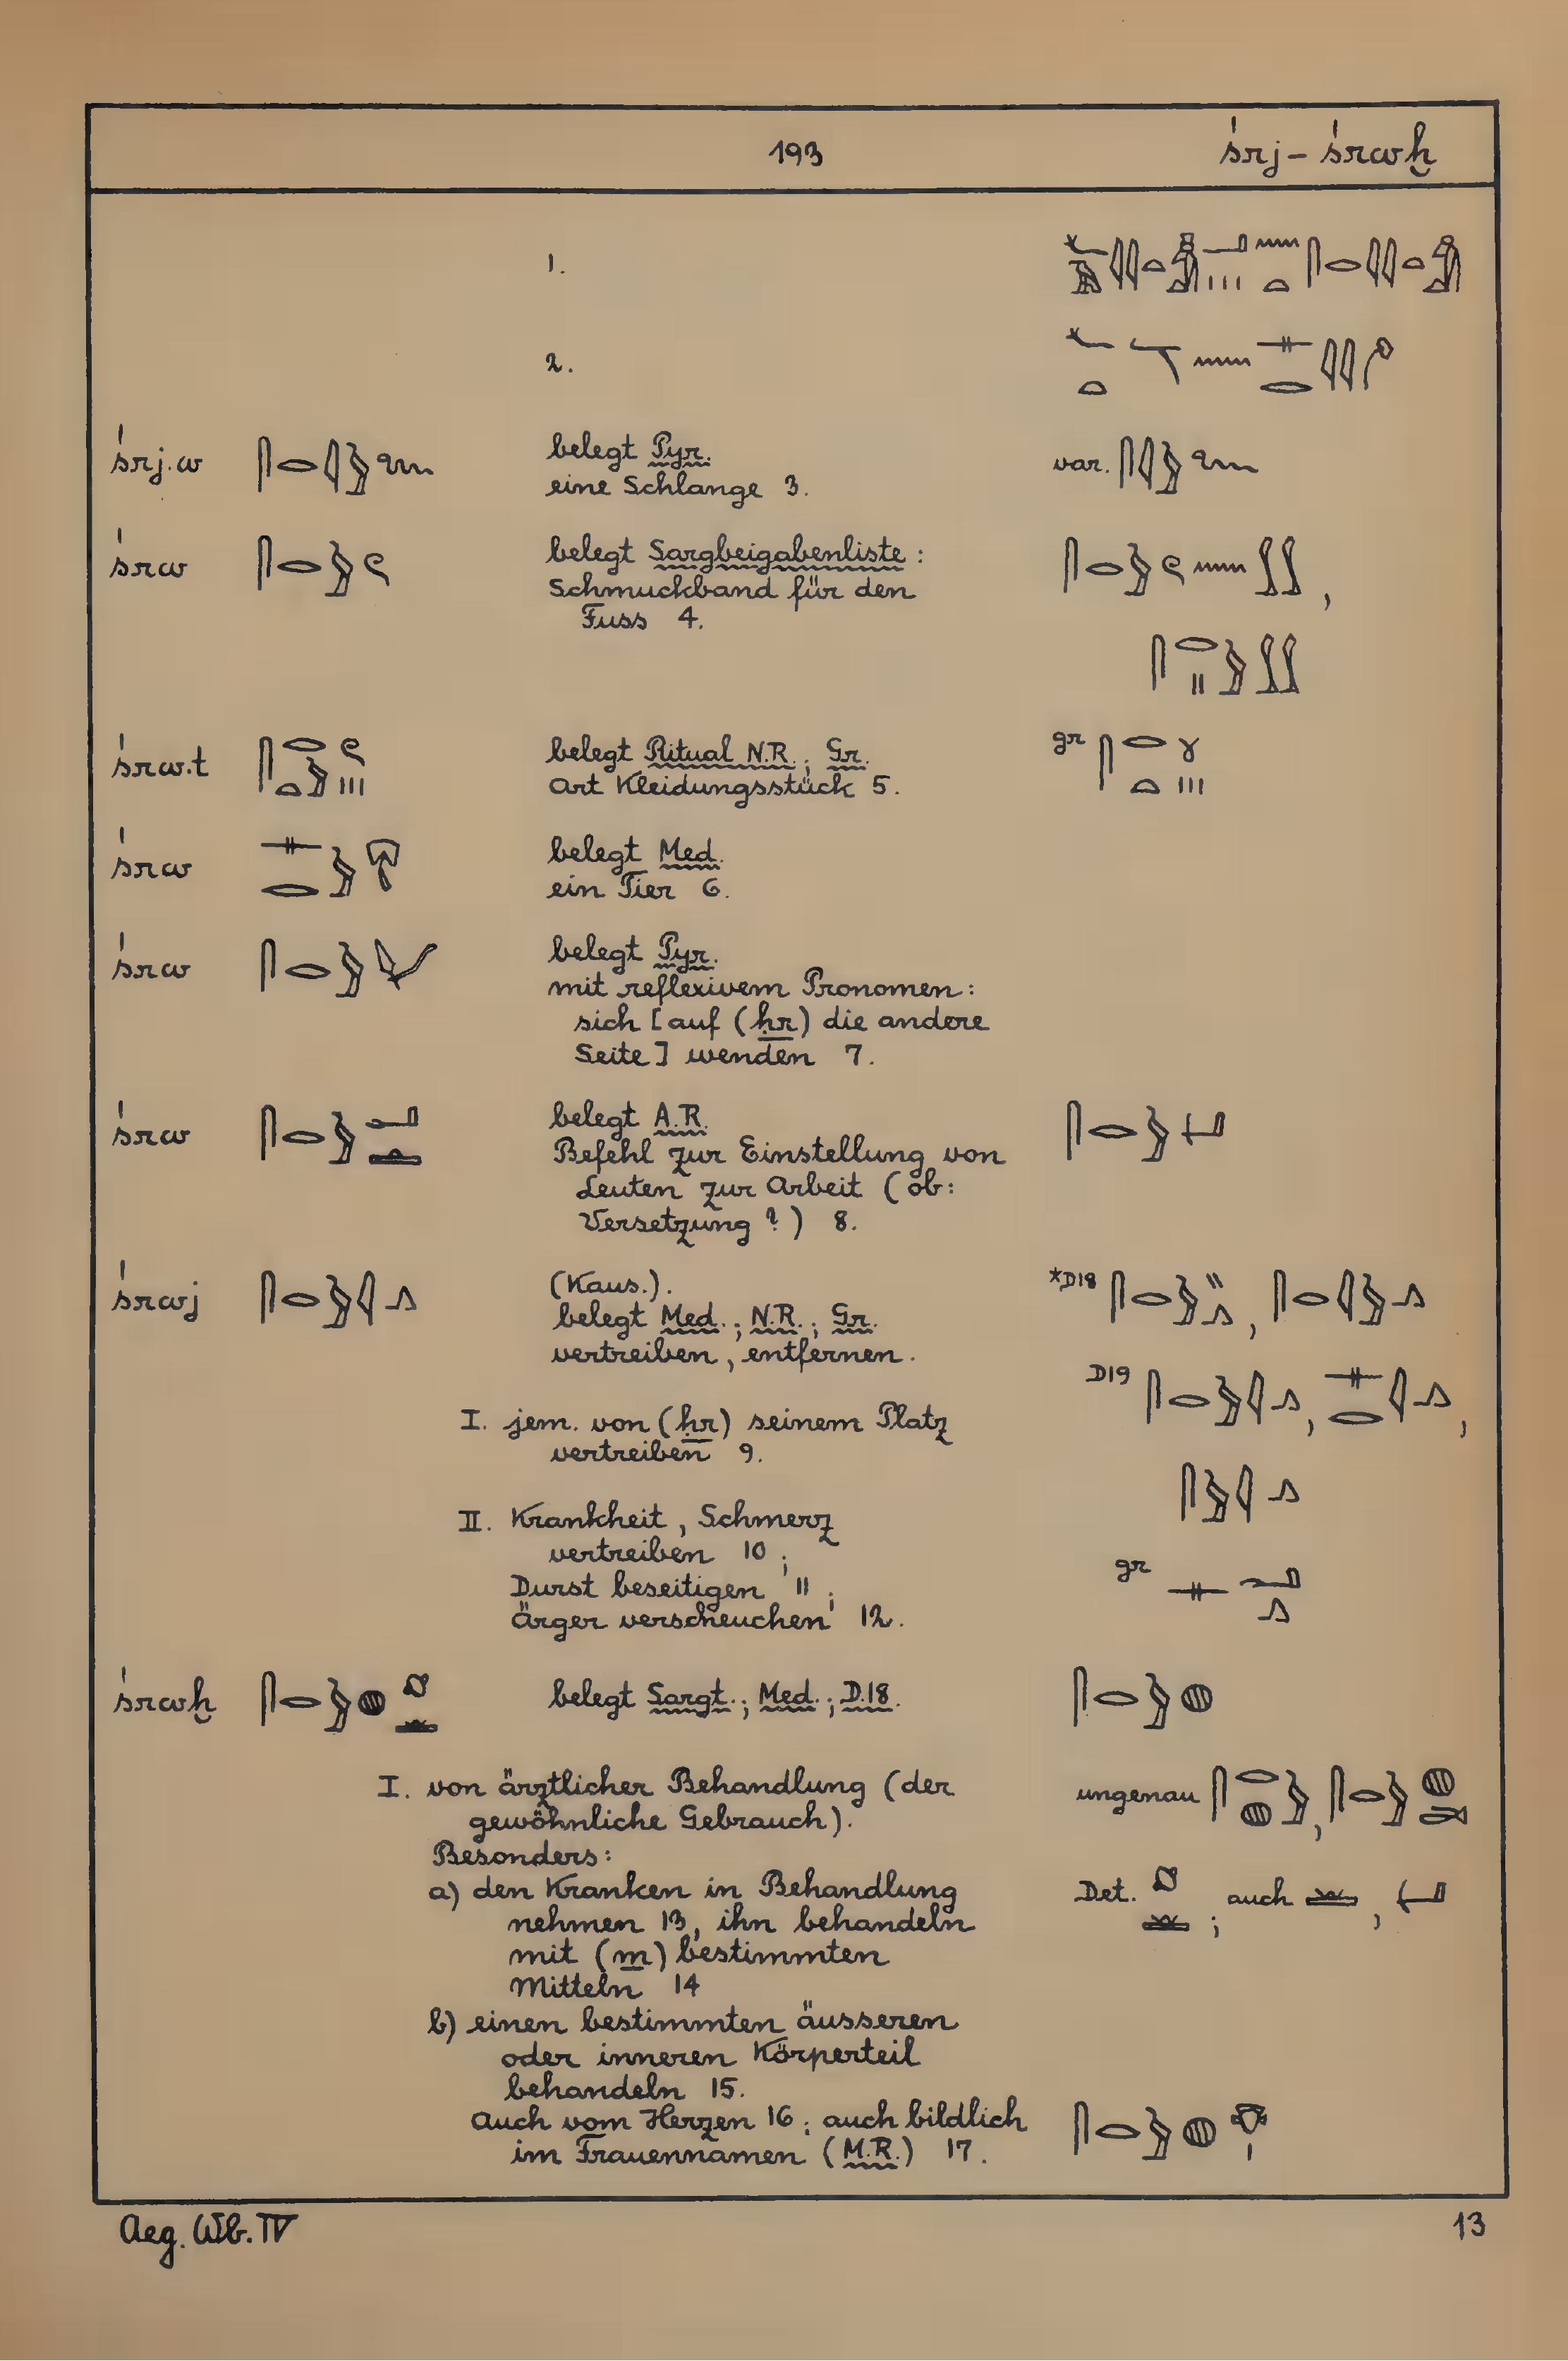 193
śrj – śrwḫ
1.
2.
śrj.w
belegt Pyr.
eine Schlange 3.
var.
śrw
belegt Sargbeigabenliste :
Schmuckband für den
Fuss 4.
śrw.t
belegt Ritual N.R.; Gr.
Art Kleidungsstück 5.
gr
śrw
belegt Med.
ein Tier 6.
śrw
belegt Pyr.
mit reflexivem Pronomen:
sich [auf (ḥr) die andere
Seite] wenden 7.
śrw
belegt A.R.
Befehl zur Einstellung von
Leuten zur Arbeit (ob:
Versetzung?) 8.
śrwj
(Kaus.).
belegt Med.; N.R.; Gr.
vertreiben, entfernen.
*D18
D19
I. jem. von (ḥr) seinem Platz
vertreiben 9.
II. Krankheit, Schmerz
vertreiben 10;
Durst beseitigen 11;
ärger verscheuchen 12.
gr
śrwḫ
belegt Sargt.; Med.; D.18.
I. von ärztlicher Behandlung (der
gewöhnliche Gebrauch).
ungenau
Besonders:
a) den Kranken in Behandlung
nehmen 13, ihn behandeln
mit (m) bestimmten
Mitteln 14
Det. ; auch ,
b) einen bestimmten äusseren
oder inneren Körperteil
behandeln 15.
Auch vom Herzen 16; auch bildlich
im Frauennamen (M.R.) 17.
Aeg. Wb. IV
13